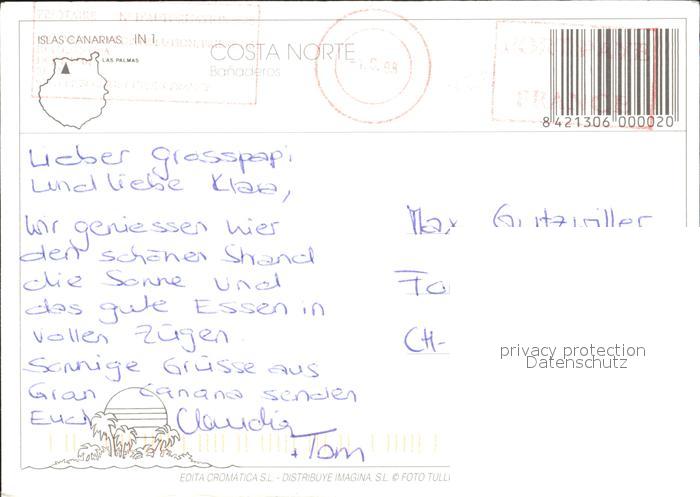 ISLAS CANARIAS IN 1
LAS PALMAS
COSTA NORTE
Bañaderos
FRANCE
8 421306 000020
Lieber Grosspapi
und liebe Klaa,
Wir geniessen hier
den schönen Strand
die Sonne und
das gute Essen in
vollen Zügen.
Sonnige Grüsse aus
Gran Canaria senden
Euch Claudia
+ Tom
Max
CH-
privacy protection
Datenschutz
EDITA CROMATICA S.L. - DISTRIBUYE IMAGINA. S.L. © FOTO TULLI